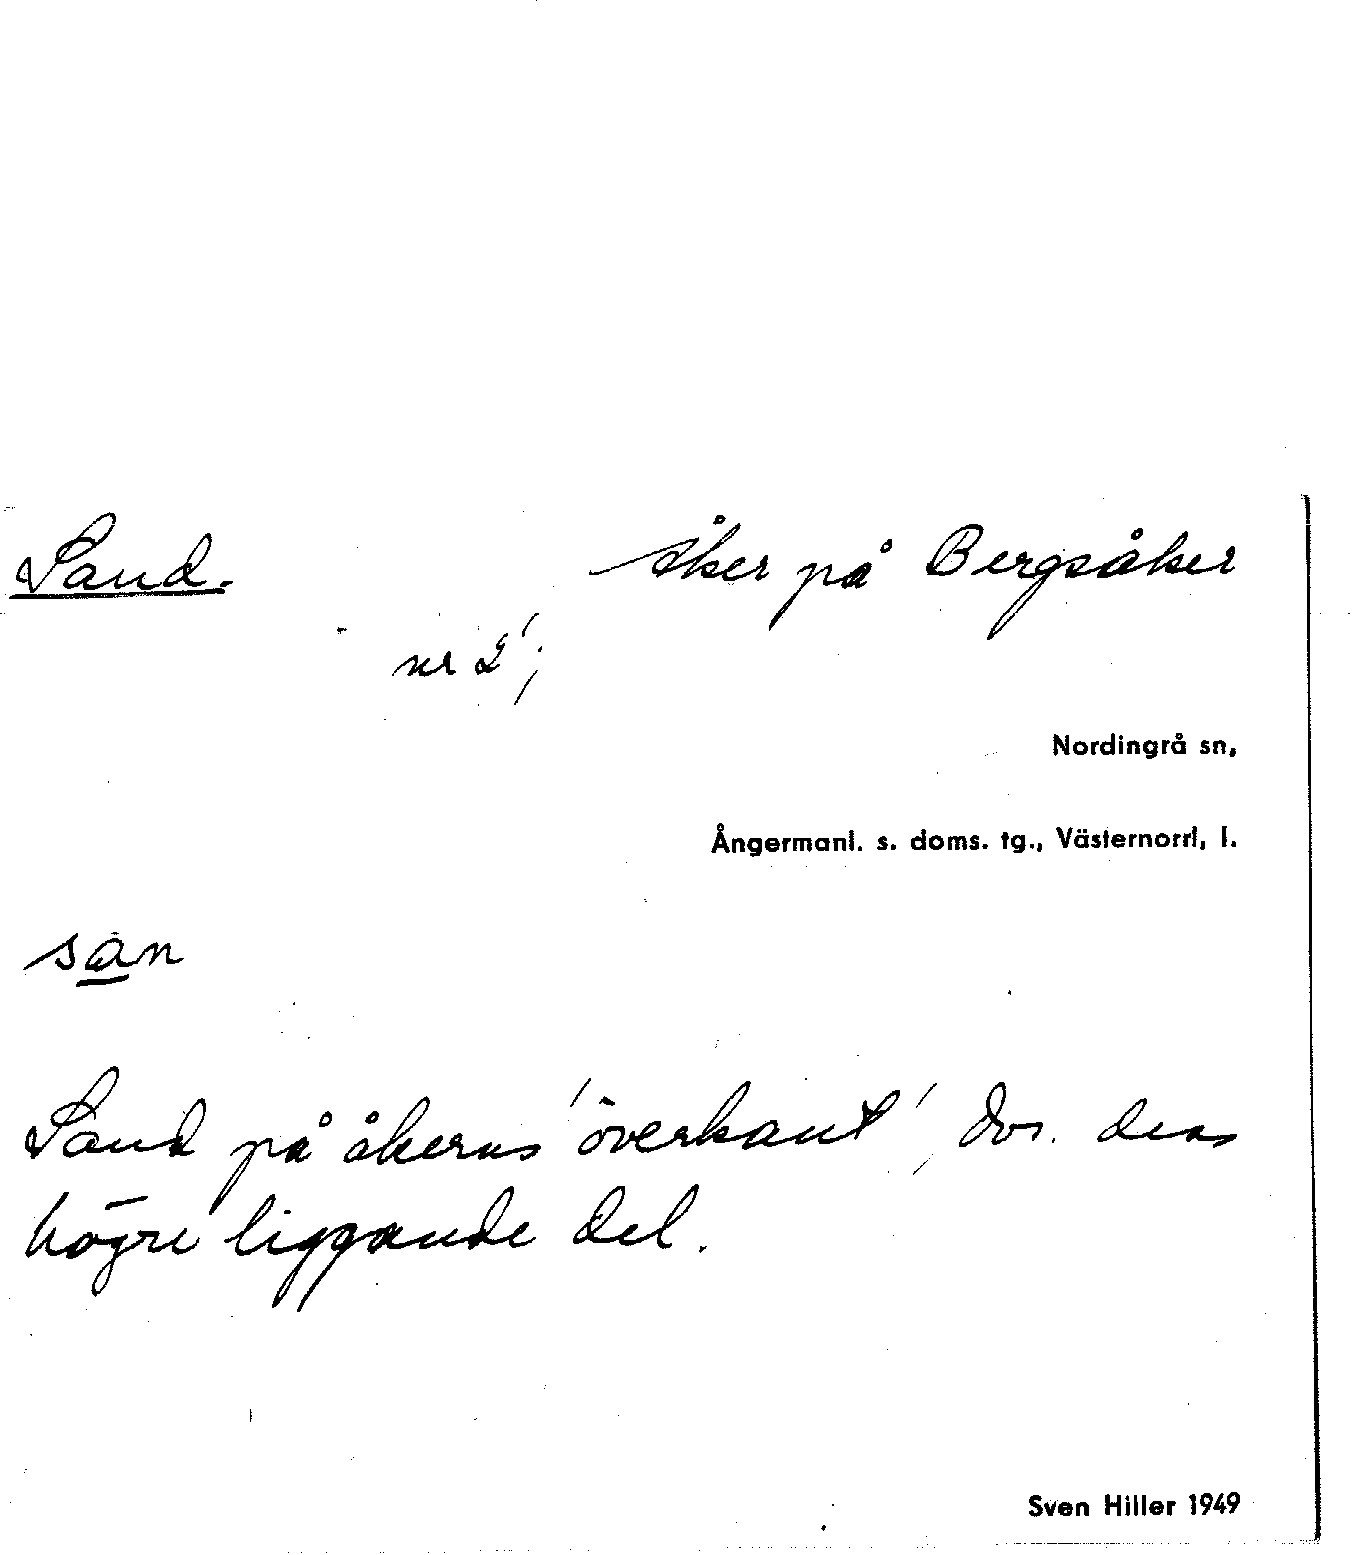 Sand. Åker på Bergsåker
nr 2';
Nordingrå sn,
Ångermanl. s. doms. tg., Västernorrl. l.
san
Sand på åkerns 'överkant', dvs. dess
högre liggande del.
Sven Hiller 1949